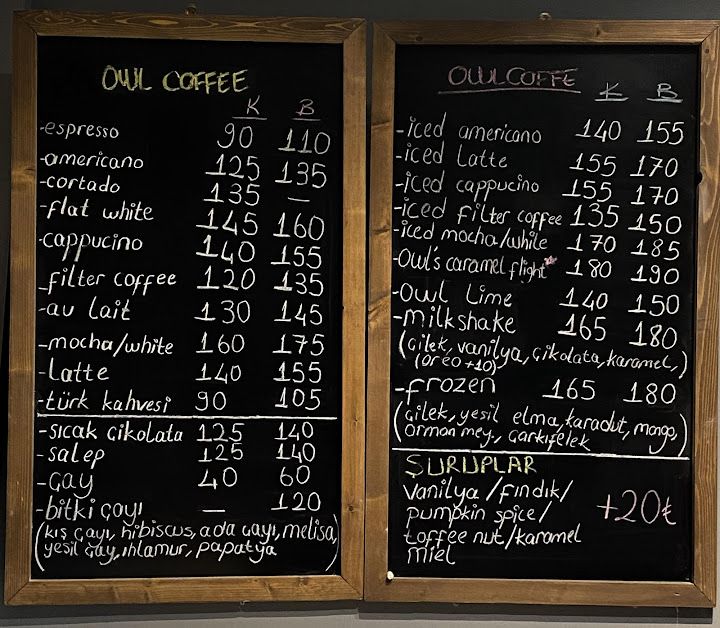 OWL COFFEE
K B
-espresso 90 110
-americano 125 135
-cortado 135 —
-flat white 145 160
-cappucino 140 155
-filter coffee 120 135
-au lait 130 145
-mocha/white 160 175
-latte 140 155
-türk kahvesi 90 105
-sıcak çikolata 125 140
-salep 125 140
-çay 40 60
-bitki çayı — 120
(kış çayı, hibiscus, ada çayı, melisa,
yeşil çay, ıhlamur, papatya)
OWL COFFE
K B
-iced americano 140 155
-iced latte 155 170
-iced cappucino 155 170
-iced filter coffee 135 150
-iced mocha/white 170 185
-Owl's caramel flight* 180 190
-Owl Lime 140 150
-milkshake 165 180
(çilek, vanilya, çikolata, karamel,)
(oreo +10)
-frozen 165 180
(çilek, yeşil elma, karadut, mango,
orman mey., çarkıfelek)
ŞURUPLAR
vanilya / fındık/
pumpkin spice/ +20₺
toffee nut/karamel
miel